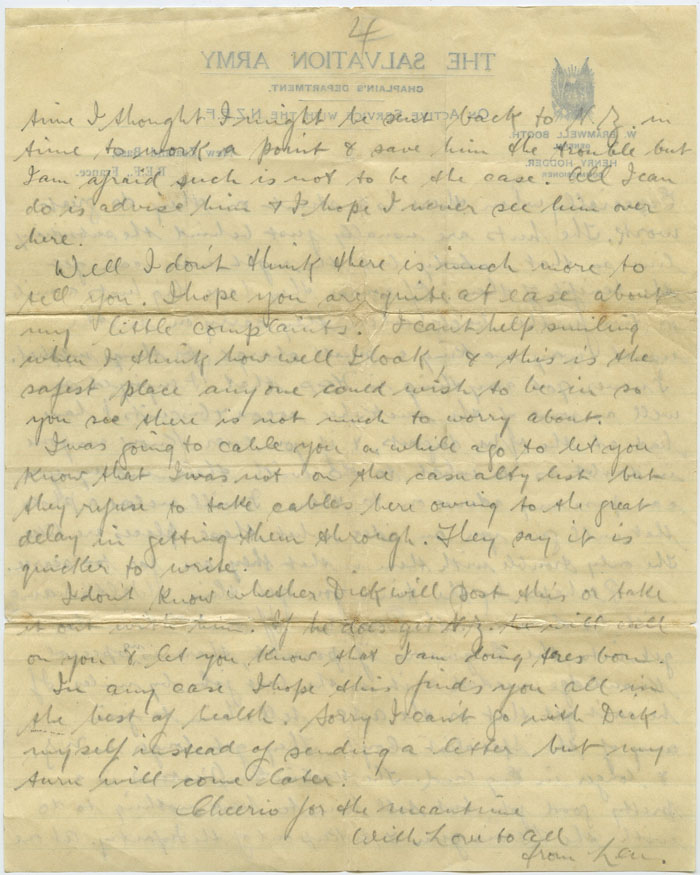 4
THE SALVATION ARMY
CHAPLAIN'S DEPARTMENT.
On Active Service with the N.Z.E.F.
W. BRAMWELL BOOTH.
HENRY HODDER.
time I thought I might be sent back to N.Z. in
time to work a point & save him the trouble but
I am afraid such is not to be the case. All I can
do is advise him & I hope I never see him over
here.
Well I don't think there is much more to
tell you. I hope you are quite at ease about
my little complaints. I can't help smiling
when I think how well I look, & this is the
safest place anyone could wish to be in so
you see there is not much to worry about.
I was going to cable you a while ago to let you
know that I was not on the casualty list but
they refuse to take cables here owing to the great
delay in getting them through. They say it is
quicker to write.
I don't know whether Dick will post this or take
it out with him. If he does get N.Z. he will call
on you & let you know that I am doing tres bon
In any case I hope this finds you all in
the best of health. Sorry I can't go with Dick
myself instead of sending a letter but my
turn will come later.
Cheerio for the meantime
With Love to all
from Len.